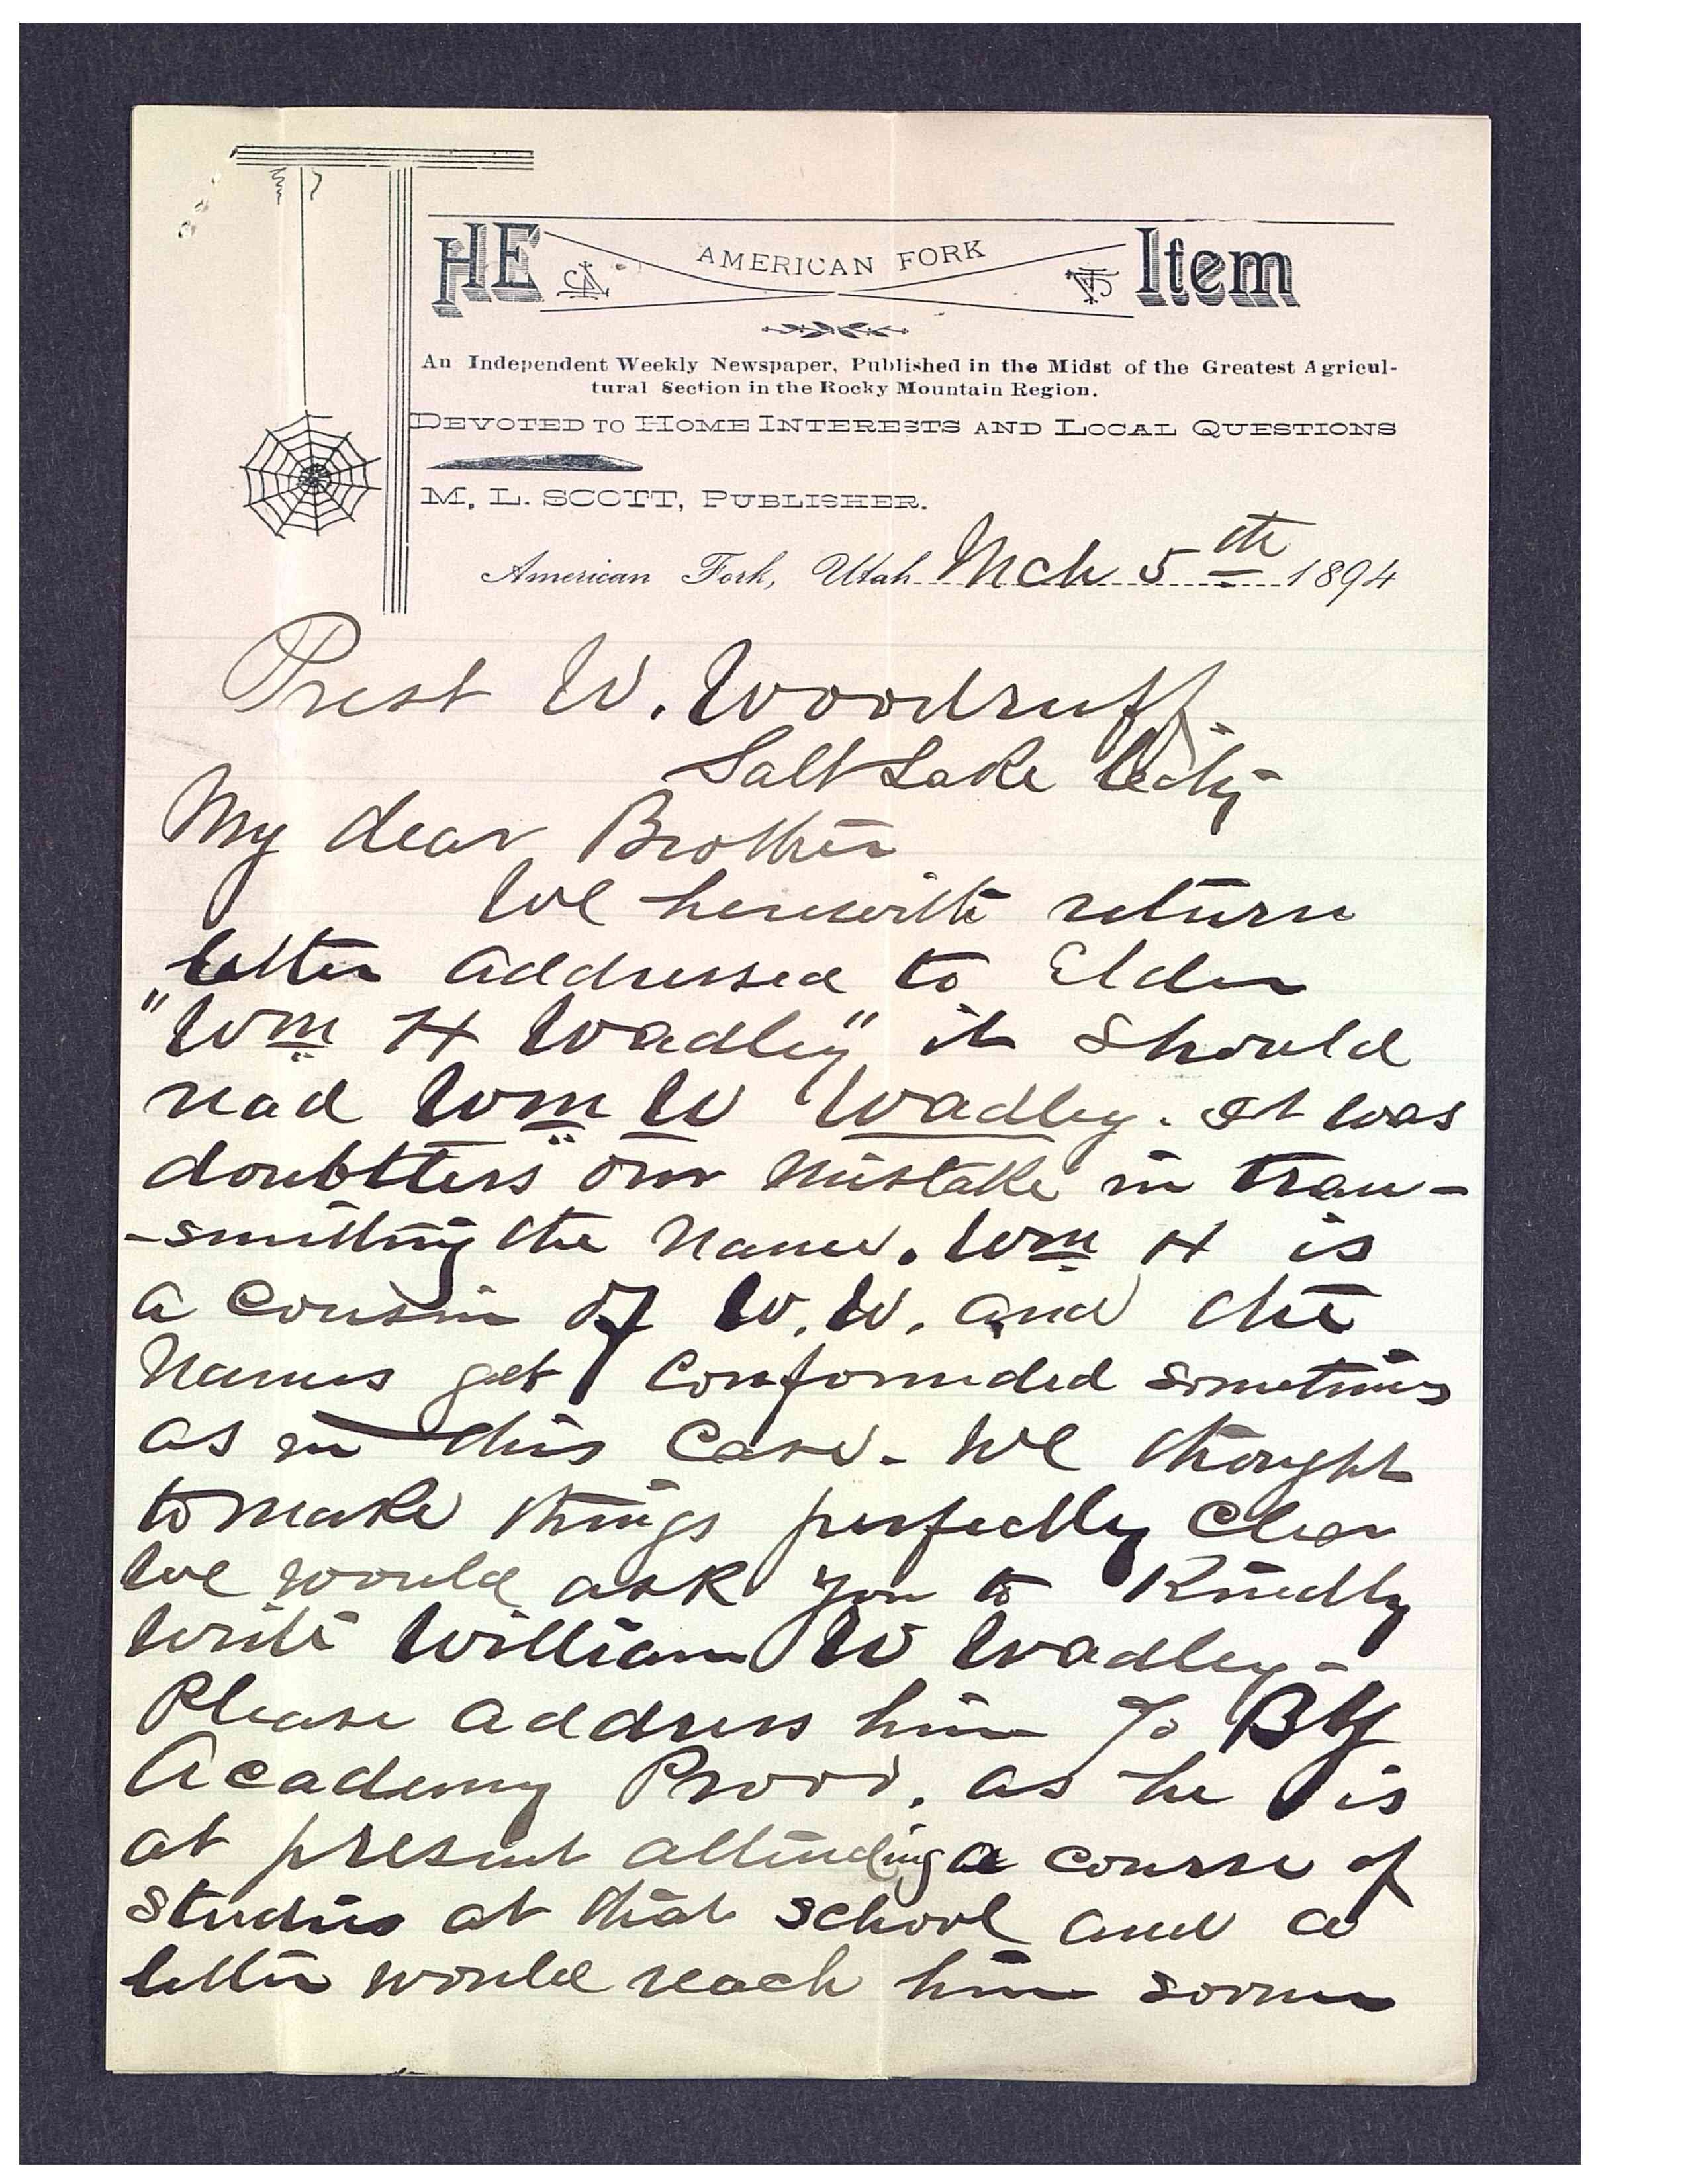 THE AMERICAN FORK Item
An Independent Weekly Newspaper, Published in the Midst of the Greatest Agricul-
tural Section in the Rocky Mountain Region.
DEVOTED TO HOME INTERESTS AND LOCAL QUESTIONS
M. L. SCOTT, PUBLISHER.
American Fork, Utah Mch 5th 1894
Prest W. Woodruff.
Salt Lake City
My dear Brother
We herewith return
letter addressed to Elder
"Wm H Wadley" it should
read Wm W Wadley. It was
doubtless our mistake in tran-
-smitting the name. Wm H is
a cousin of W. W. and the
names get confounded sometimes
as in this case. We thought
to make things perfectly clear
we would ask you to kindly
write William W Wadley -
Please address him To BY
Academy Provo, as he is
at present attending a course of
studies at that school and a
letter would reach him sooner